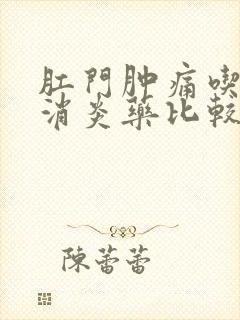 肛門肿痛喫
消炎藥比較
陳蕾蕾